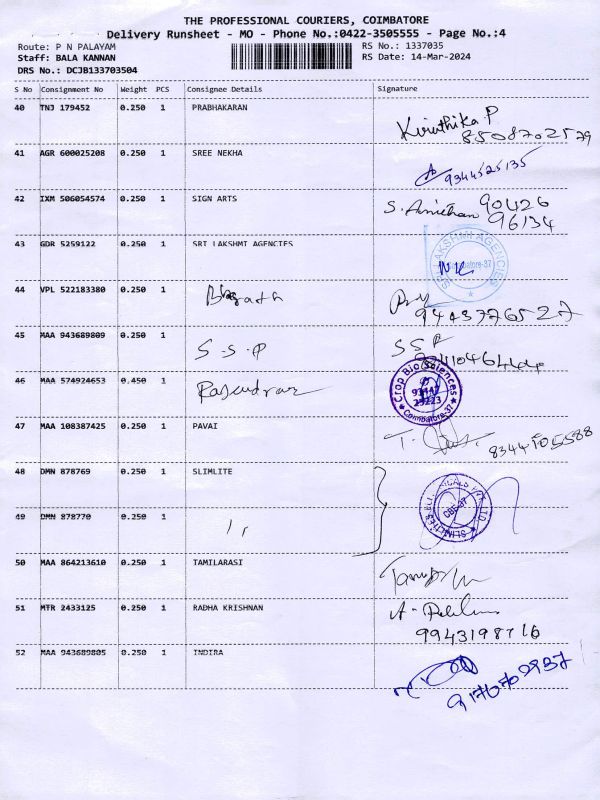 THE PROFESSIONAL COURIERS, COIMBATORE
Delivery Runsheet - MO - Phone No.:0422-3505555 - Page No.:4
Route: P N PALAYAM RS No.: 1337035
Staff: BALA KANNAN RS Date: 14-Mar-2024
DRS No.: DCJB133703504
S No Consignment No Weight PCS Consignee Details Signature
40 TNJ 179452 0.250 1 PRABHAKARAN
Kiruthika P
8508702579
41 AGR 600025208 0.250 1 SREE NEKHA
9344525135
42 IXM 506054574 0.250 1 SIGN ARTS
S. 90426
96134
43 GDR 5259122 0.250 1 SRI LAKSHMI AGENCIES
SRI LAKSHMI AGENCIES
Coimbatore-37
44 VPL 522183380 0.250 1
9443776527
45 MAA 943689809 0.250 1 S-S-P
SSP
46 MAA 574924653 0.450 1 Rajendran
Crop Bio Sciences
Coimbatore-37
47 MAA 108387425 0.250 1 PAVAI
8344105588
48 DMN 878769 0.250 1 SLIMLITE
CBE-37
49 DMN 878770 0.250 1
50 MAA 864213610 0.250 1 TAMILARASI
51 MTR 2433125 0.250 1 RADHA KRISHNAN
9943198716
52 MAA 943689805 0.250 1 INDIRA